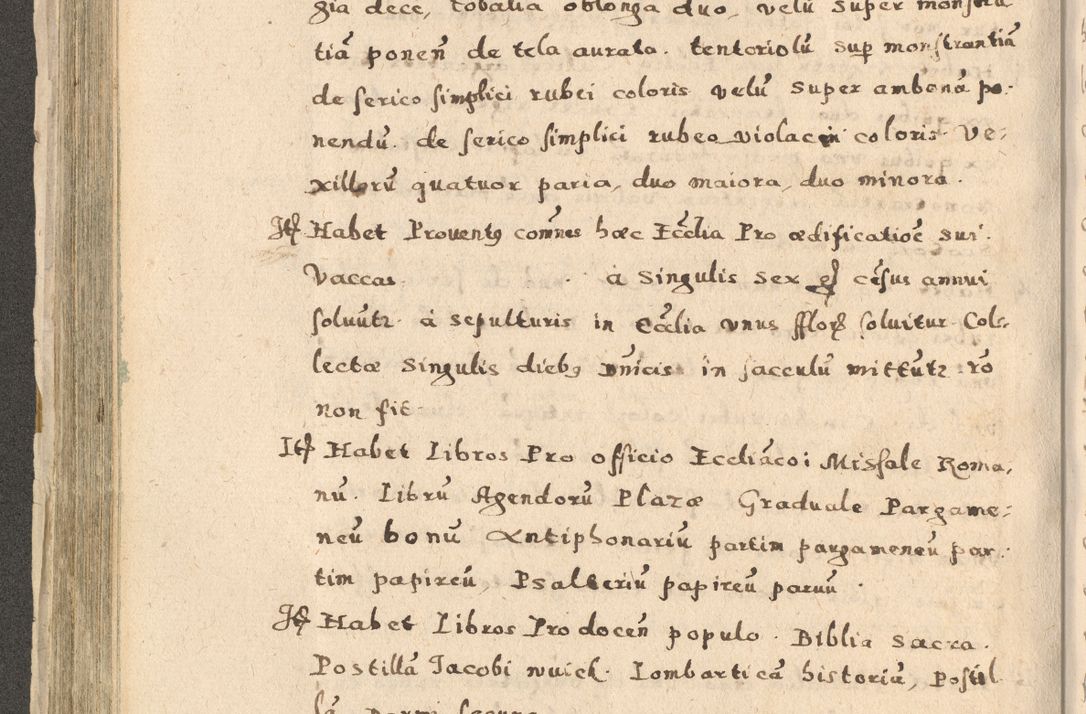 gia dece, tobalia oblonga duo, velũ super monstrã
tiã ponen̄ de tela aurata. tentoriolũ sup monstrantiã
de serico simplici rubei coloris velũ super ambonã po-
nendũ. de serico simplici rubeo violacei coloris. Ve-
xillorũ quatuor paria, duo maiora, duo minora.
Itē Habet Proventꝯ com̄nes hæc Ecc̄lia Pro ædificatiōe sui.
Vaccas. à singulis sex gʳ cēsus annui
solvũtr. à sepulturis in Ecc̄lia unus fflor solvitur. Col-
lectæ singulis diebꝯ Dn̄icis in sacculũ mittũtr rõ
non fit.
Itē Habet Libros Pro officio Eccliāco: Missale Roma-
nũ. Librũ Agendorũ Plaræ Graduale Pargame-
neũ bonũ Antiphonariũ partim pargameneũ par-
tim papireũ, Psalteriũ papireũ parvũ.
Itē Habet Libros Pro docen̄ populo. Biblia Sacra.
Postillã Jacobi wuiek. Lombarticã historiã, Postil-
lã